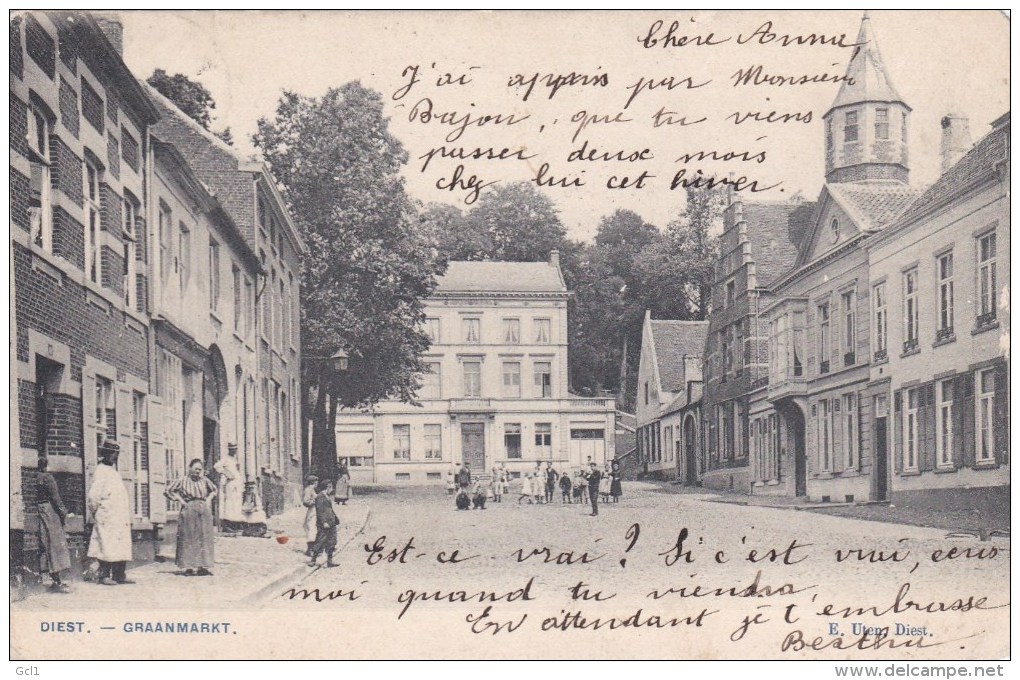 Chère Anna
J'ai appris par Monsieur
Bajon, que tu viens
passer deux mois
chez lui cet hiver.
Est-ce vrai ? Si c'est vrai, écris
moi quand tu viendras
En attendant je t'embrasse
Bertha
DIEST. — GRAANMARKT.
E. Uten, Diest.
Gcl1
http://www.delcampe.net